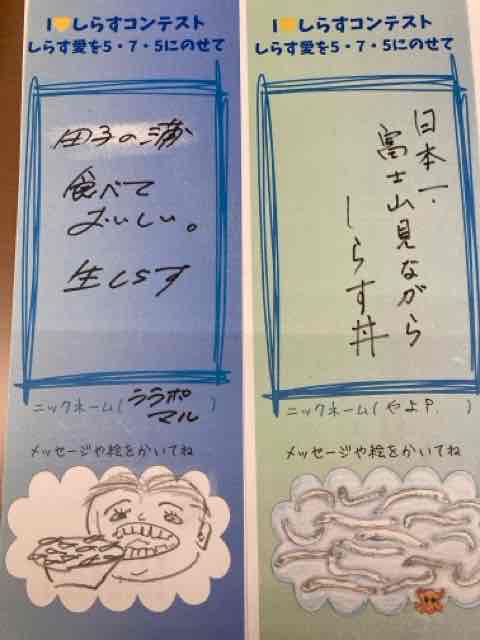 I💛しらすコンテスト
しらす愛を5・7・5にのせて
田子の浦
食べて
おいしい。
生しらす
ニックネーム(ララポ
マル)
メッセージや絵をかいてね
I💛しらすコンテスト
しらす愛を5・7・5にのせて
日本一.
富士山見ながら
しらす丼
ニックネーム(やよP.)
メッセージや絵をかいてね